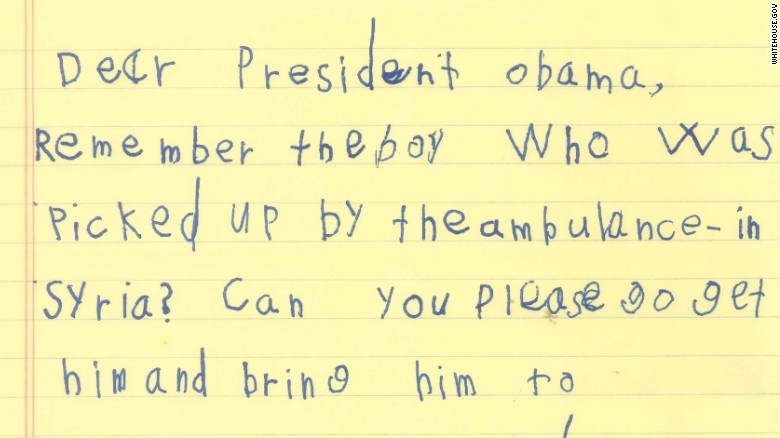 Dear President obama,
Remember the boy Who was
picked up by the ambulance-in
Syria? Can you please go get
him and bring him to
WHITEHOUSE.GOV